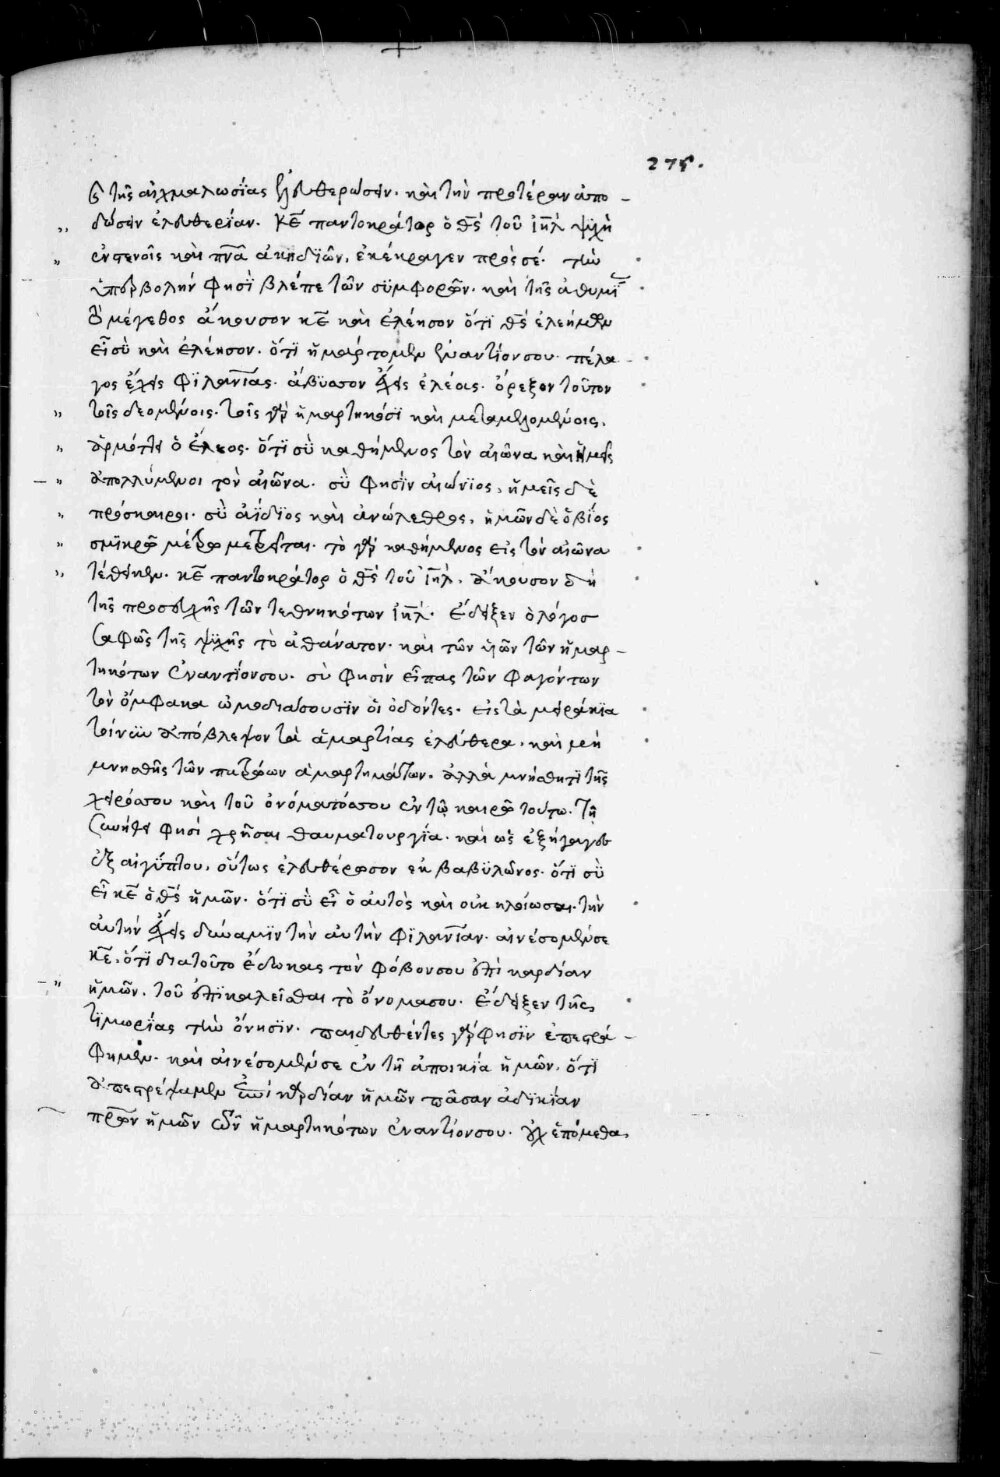 275.
καὶ τῆς αἰχμαλωσίας ἐλευθερώσειν. καὶ τὴν προτέραν ἀπο-
δώσειν ἐλευθερίαν. κε̄ παντοκράτορ ὁ θς̄ τοῦ ιη̄λ ψυχὴ
ἐν στενοῖς καὶ πνᾱ ἀκηδιῶν, ἐκέκραγεν πρὸς σέ. τὴν
ὑπερβολήν φησϊ βλέπε τῶν συμφορῶν. καὶ τῆς ἀθυμί
τὸ μέγεθος ἄκουσον κε̄ καὶ ἐλέησον ὅτϊ θς̄ ἐλεήμων
εἶ σὺ καὶ ἐλέησον. ὅτϊ ἡμάρτομεν ἐναντίον σου. πέλα
γος ἔχεις φϊλανίας. ἄβυσσον ἔχεις ἐλέους. ὄρεξον τοῦτον
τοῖς δεομένοις. τοῖς γὰρ ἡμαρτηκόσϊ καὶ μεταμελομένοις,
ἁρμόττει ὁ ἔλεος. ὅτϊ σὺ καθήμενος τὸν αἰῶνα καὶ ἡμεῖς
ἀπολλύμενοι τὸν αἰῶνα. σὺ φησϊν αἰώνϊος, ἡμεῖς δὲ
πρόσκαιροι. σὺ ἀΐδϊος καὶ ἀνώλεθρος, ἡμῶν δὲ ὁ βίος
σμϊκρῷ μέτρῳ μετρεῖται. τὸ γὰρ καθήμενος εἰς τὸν αἰῶνα
τέθεικεν. κε̄ παντοκράτορ ὁ θς̄ τοῦ ιη̄λ. ἄκουσον δὴ
τῆς προσευχῆς τῶν τεθνηκότων ιη̄λ. ἔδειξεν ὁ λόγος
σαφῶς τῆς ψυχῆς τὸ ἀθάνατον. καὶ τῶν υἱῶν τῶν ἡμαρ-
τηκότων ἐναντίον σου. σὺ φησὶν εἶπας τῶν φαγόντων
τὸν ὄμφακα ὠμοδιάσουσϊν οἱ ὀδόντες. εἰς τὰ μειράκϊα
τοίνυν ἀπόβλεψον τὰ ἁμαρτίας ἐλεύθερα. καὶ μὴ
μνησθῆς τῶν πατρώων ἁμαρτημάτων. ἀλλὰ μνήσθητϊ τῆς
χειρός σου καὶ τοῦ ὀνόματός σου ἐν τῷ καιρῷ τούτῳ. τῇ
συνήθει φησί χρῆσαι θαυματουργία. καὶ ὡς ἐξήγαγες
ἐξ αἰγύπτου, οὕτως ἐλευθέρωσον ἐκ βαβϋλῶνος. ὅτϊ σὺ
εἶ κε̄ ὁ θς̄ ἡμῶν. ὅτϊ σὺ εἶ ὁ αὐτὸς καὶ οὐκ ἠλοίωσαι. τὴν
αὐτὴν ἔχεις δύναμϊν τὴν αὐτὴν φϊλανίαν. αἰνέσομέν σε
κε̄. ὅτϊ διατοῦτο ἔδωκας τὸν φόβον σου ἐπὶ καρδίαν
ἡμῶν. τοῦ ἐπϊκαλεῖσθαι τὸ ὄνομά σου. ἔδειξεν τῆς
τϊμωρίας τὴν ὄνησϊν. παιδευθέντες γὰρ φησϊν ἐπεστρά-
φημεν. καὶ αἰνέσομέν σε ἐν τῇ ἀποικία ἡμῶν. ὅτϊ
ἀπεστρέψαμεν ἐπὶ καρδίαν ἡμῶν πᾶσαν ἀδϊκίαν
πρ̄ων ἡμῶν τῶν ἡμαρτηκότων ἐναντίον σου. οὐχ ἑπόμεθα